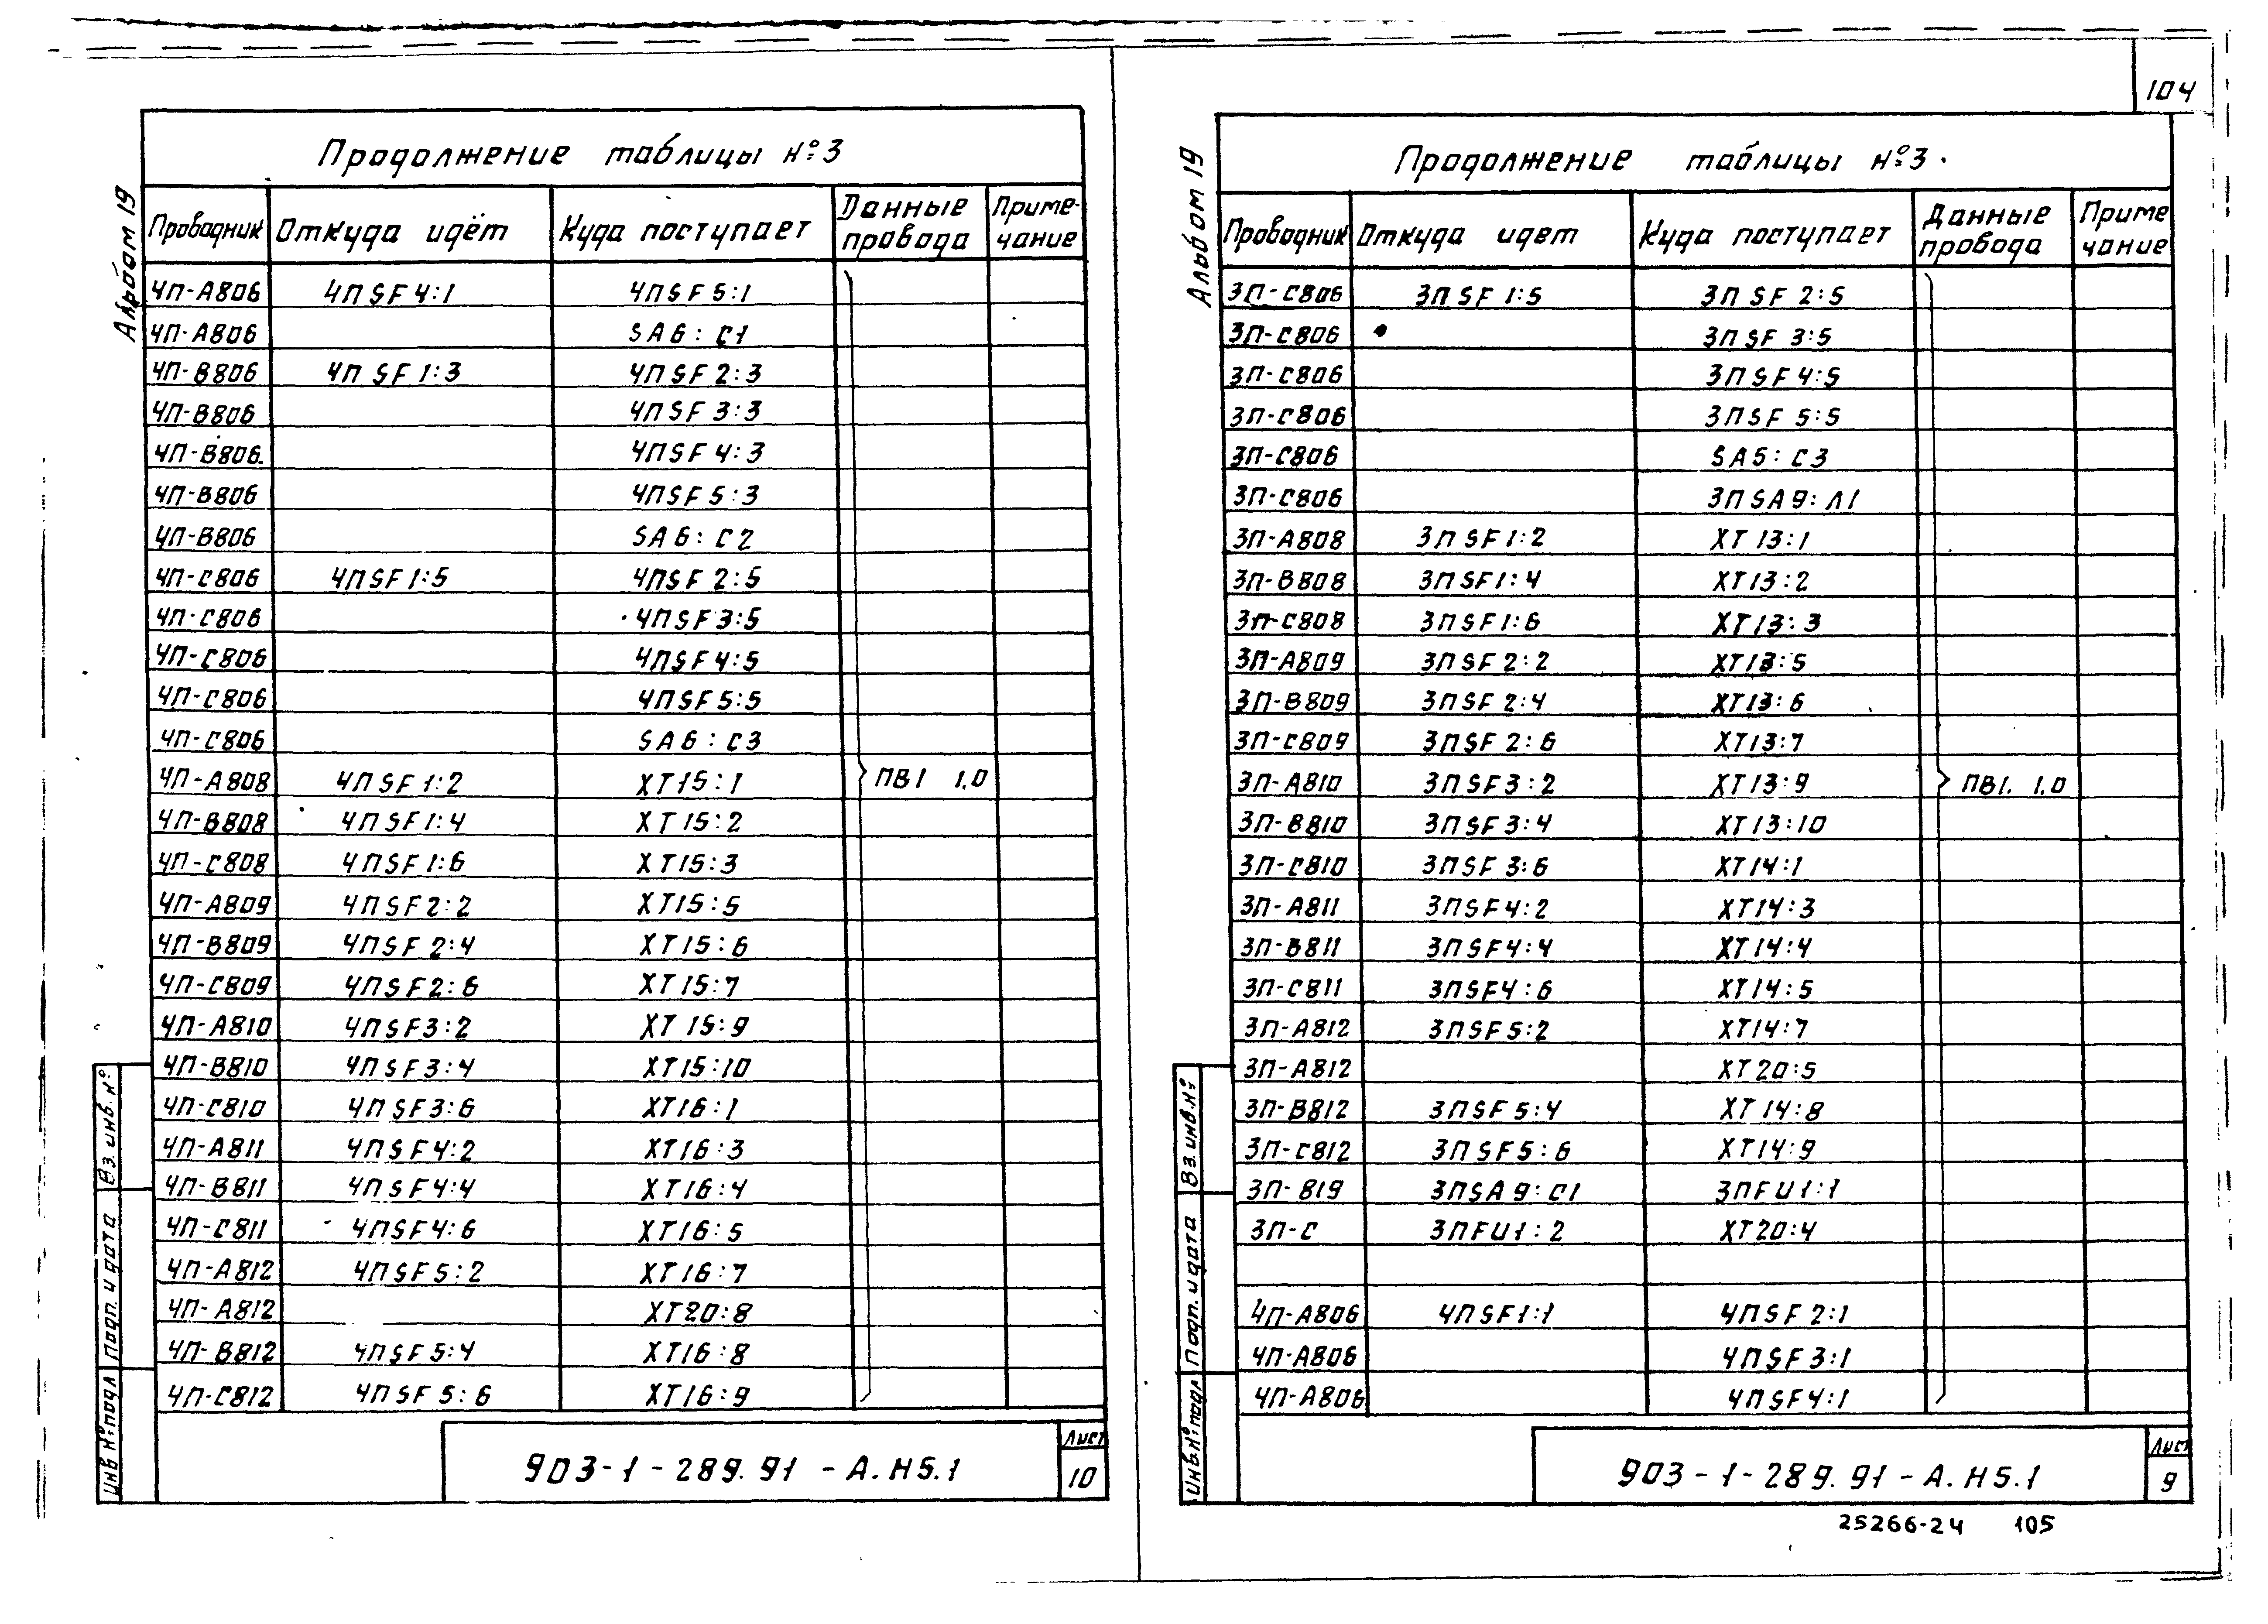 104
Альбом 19
Продолжение таблицы №3
Проводник Откуда идёт Куда поступает Данные провода Примечание
4П-А806 4ПSF4:1 4ПSF5:1
4П-А806 SA6:C1
4П-В806 4ПSF1:3 4ПSF2:3
4П-В806 4ПSF3:3
4П-В806 4ПSF4:3
4П-В806 4ПSF5:3
4П-В806 SA6:C2
4П-С806 4ПSF1:5 4ПSF2:5
4П-С806 4ПSF3:5
4П-С806 4ПSF4:5
4П-С806 4ПSF5:5
4П-С806 SA6:C3
4П-А808 4ПSF1:2 XT15:1 ПВ1 1,0
4П-В808 4ПSF1:4 XT15:2
4П-С808 4ПSF1:6 XT15:3
4П-А809 4ПSF2:2 XT15:5
4П-В809 4ПSF2:4 XT15:6
4П-С809 4ПSF2:6 XT15:7
4П-А810 4ПSF3:2 XT15:9
4П-В810 4ПSF3:4 XT15:10
4П-С810 4ПSF3:6 XT16:1
4П-А811 4ПSF4:2 XT16:3
4П-В811 4ПSF4:4 XT16:4
4П-С811 4ПSF4:6 XT16:5
4П-А812 4ПSF5:2 XT16:7
4П-А812 XT20:8
4П-В812 4ПSF5:4 XT16:8
4П-С812 4ПSF5:6 XT16:9
Вз. инв. №
Подп. и дата
Инв № подл
903-1-289.91-А.Н5.1
Лист
10
Альбом 19
Продолжение таблицы №3.
Проводник Откуда идет Куда поступает Данные провода Примечание
3П-С806 3ПSF1:5 3ПSF2:5
3П-С806 3ПSF3:5
3П-С806 3ПSF4:5
3П-С806 3ПSF5:5
3П-С806 SA5:C3
3П-С806 3ПSA9:Л1
3П-А808 3ПSF1:2 XT13:1
3П-В808 3ПSF1:4 XT13:2
3П-С808 3ПSF1:6 XT13:3
3П-А809 3ПSF2:2 XT13:5
3П-В809 3ПSF2:4 XT13:6
3П-С809 3ПSF2:6 XT13:7
3П-А810 3ПSF3:2 XT13:9 ПВ1. 1,0
3П-В810 3ПSF3:4 XT13:10
3П-С810 3ПSF3:6 XT14:1
3П-А811 3ПSF4:2 XT14:3
3П-В811 3ПSF4:4 XT14:4
3П-С811 3ПSF4:6 XT14:5
3П-А812 3ПSF5:2 XT14:7
3П-А812 XT20:5
3П-В812 3ПSF5:4 XT14:8
3П-С812 3ПSF5:6 XT14:9
3П-819 3ПSA9:C1 3ПFU1:1
3П-С 3ПFU1:2 XT20:4
4П-А806 4ПSF1:1 4ПSF2:1
4П-А806 4ПSF3:1
4П-А806 4ПSF4:1
Вз. инв. №
Подп. и дата
Инв. № подл
903-1-289.91-А.Н5.1
Лист
9
25266-24 105